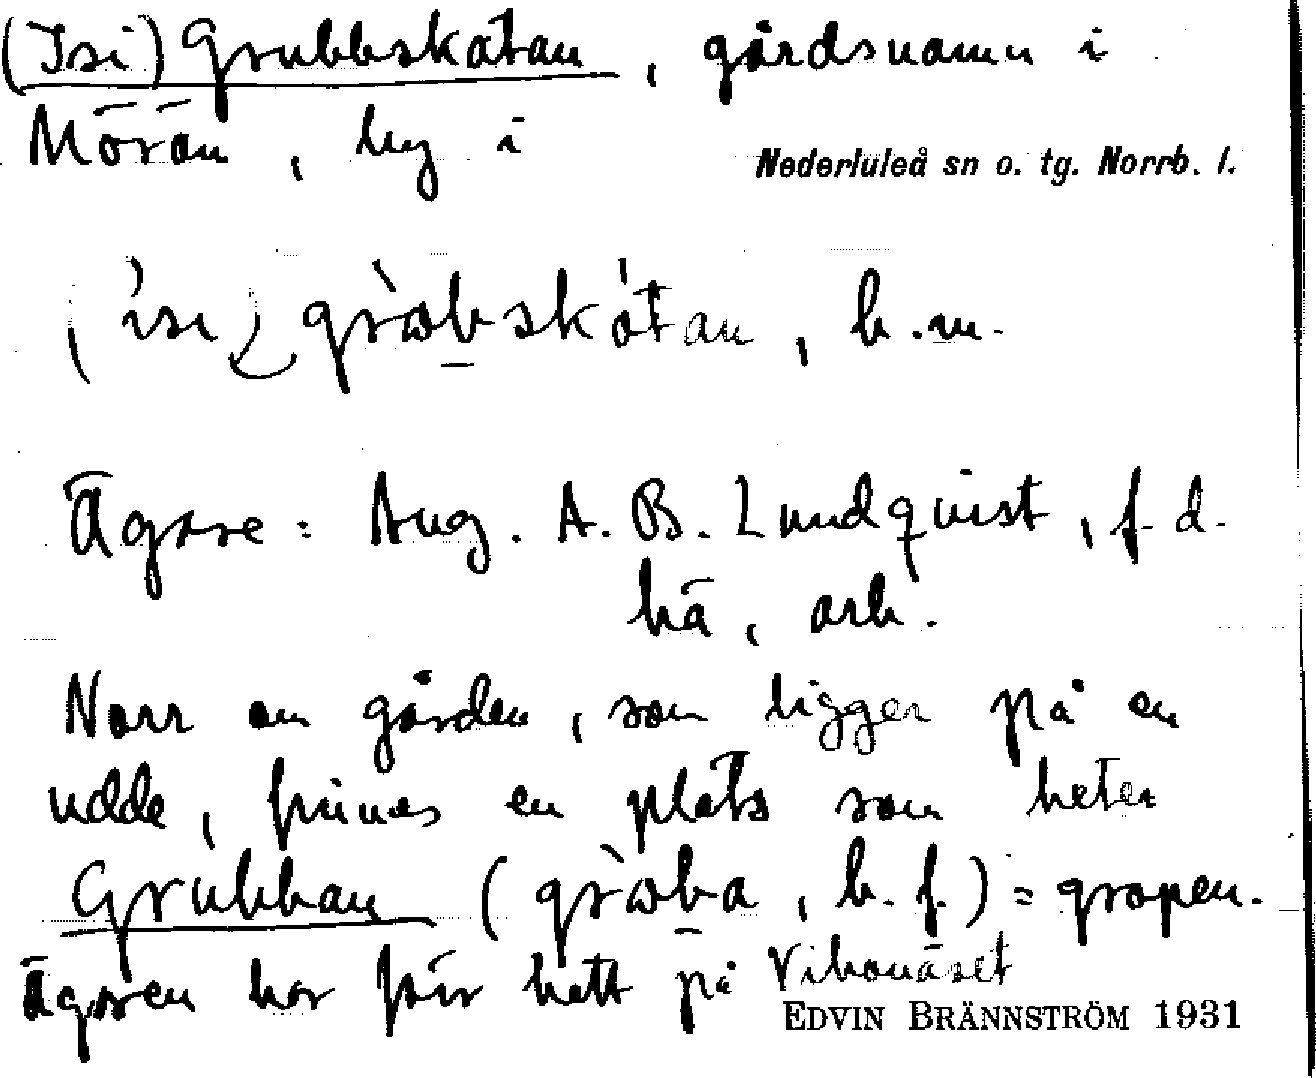 (Isi) Grubbskatan, gårdsnamn i
Mörön, by i Nederluleå sn o. tg. Norrb. l.
b.m.
Ägare: Aug. A. B. Lundquist, f.d.
arb.
Norr om gården, som ligger på en
udde, finnes en plats som heter
Grubban ( , b.f.) = gropen.
Ägaren har förr hetat på
EDVIN BRÄNNSTRÖM 1931